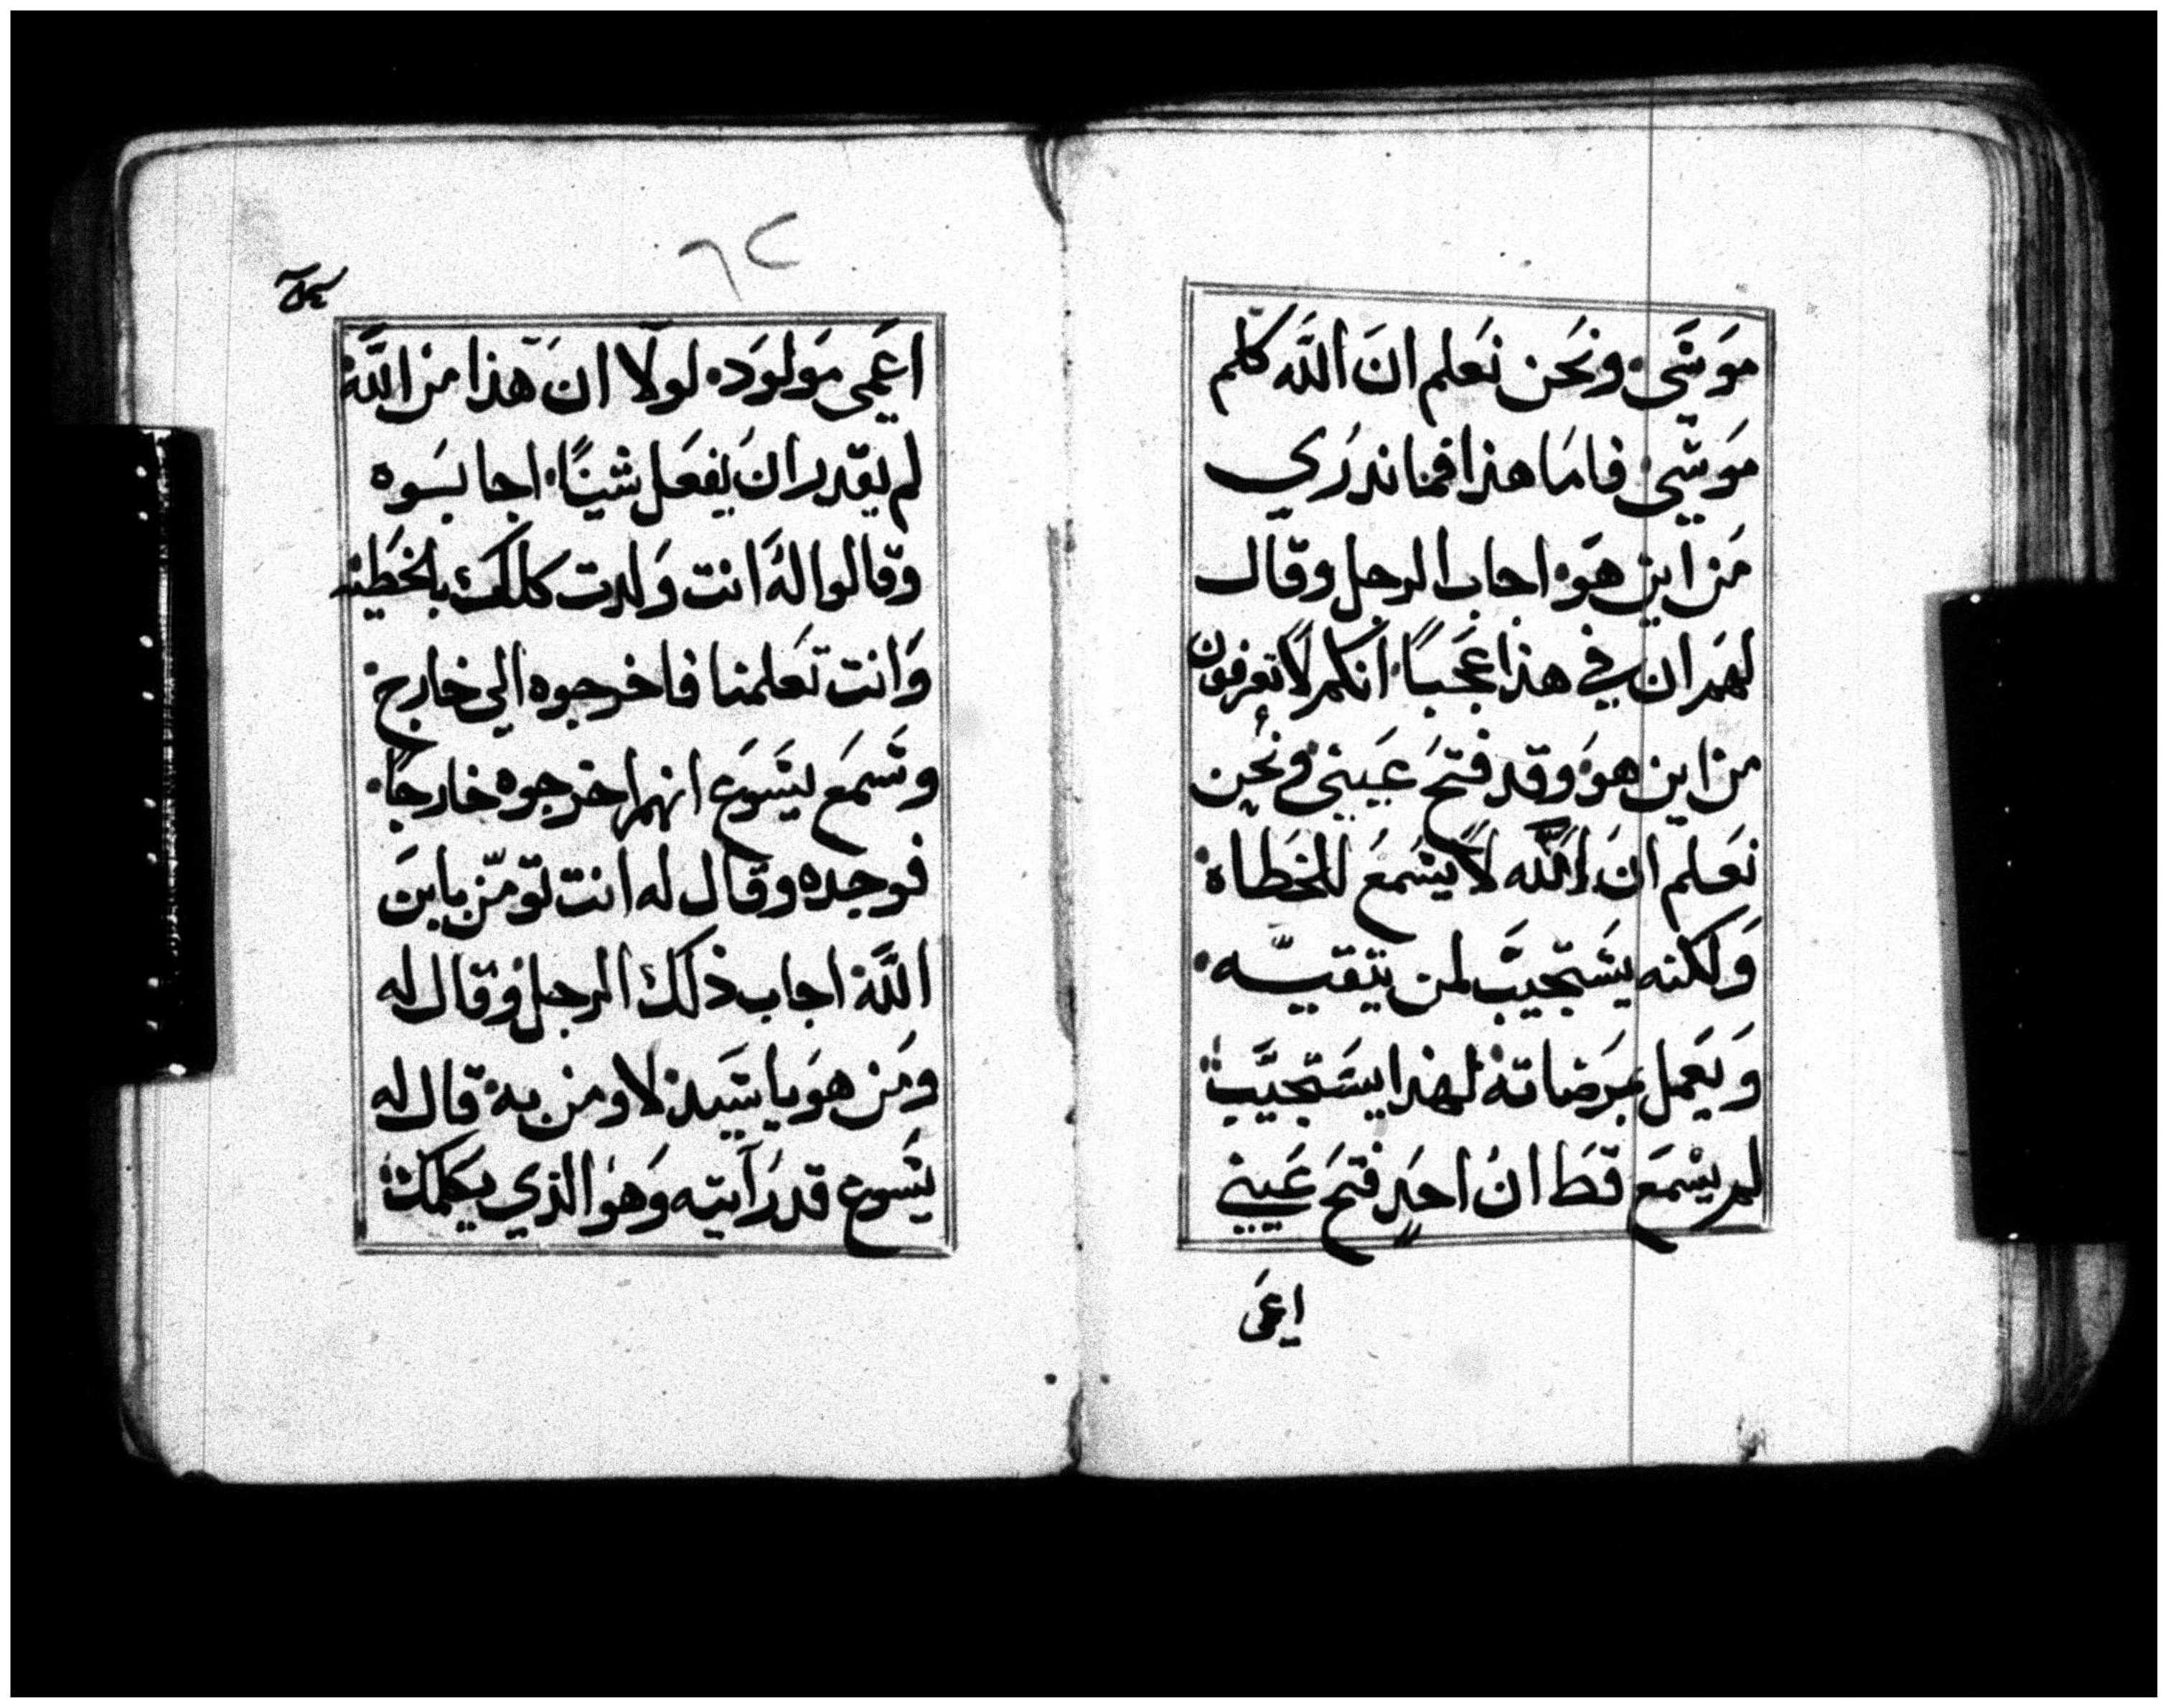 موسي ونحن نعلم ان الله كلم
موسي فاما هذا فما ندري
من اين هو اجاب الرجل وقال
لهم ان في هذا عجباً انكم لا تعرفون
من اين هو وقد فتح عيني ونحن
نعلم ان الله لا يسمع للخطاة
ولكنه يستجيب لمن يتقيه
ويعمل بمرضاته لهذا يستجيب
لم يسمع قط ان احد فتح عيني
اعمى
٦٢
اعمى مولود لولا ان هذا من الله
لم يقدر ان يفعل شيئاً اجابوه
وقالوا له انت ولدت كلك بالخطية
وانت تعلمنا فاخرجوه الي خارج
وسمع يسوع انهم اخرجوه خارجاً
فوجده وقال له انت تومن بابن
الله اجاب ذلك الرجل وقال له
ومن هو يا سيد لاومن به قال له
يسوع قد رأيته وهو الذي يكلمك